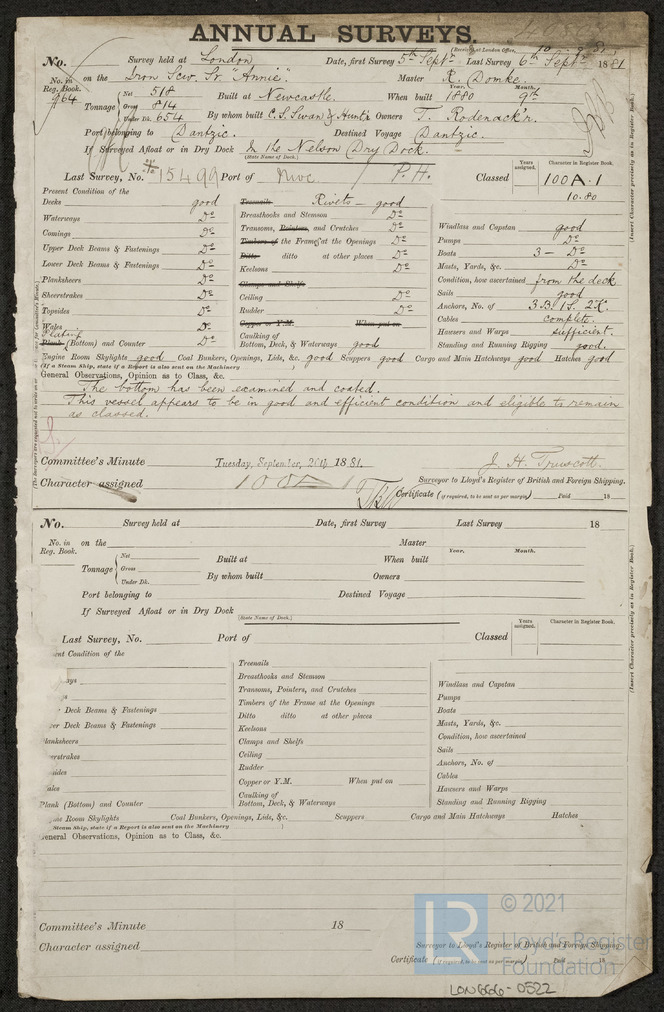 ANNUAL SURVEYS.
(Received at London Office,
No. Survey held at London Date, first Survey 5th Septr. Last Survey 6th Septr. 1881
No. in Reg. Book. on the Iron Scw. Sr. "Annie". Master R. Domke.
964
Tonnage Net 518 Gross 814 Under Dk. 654
Built at Newcastle. When built Year. 1880 Month. 9th
By whom built C.S. Swan & Hunter Owners T. Rodenack'r.
Port belonging to Dantzic. Destined Voyage Dantzic.
If Surveyed Afloat or in Dry Dock In the Nelson Dry Dock.
(State Name of Dock.)
Last Survey, No. 15499 Port of Nwc P.H. Classed
Years assigned. Character in Register Book.
100A.1
10.80
(Insert Character precisely as in Register Book.)
Present Condition of the
Decks good
Waterways Do
Comings Do
Upper Deck Beams & Fastenings Do
Lower Deck Beams & Fastenings Do
Planksheers Do
Sheerstrakes Do
Topsides Do
Wales Do
Plating
Plank (Bottom) and Counter Do
Treenails Rivets — good
Breasthooks and Stemson Do
Transoms, Pointers, and Crutches Do
Timbers of the Frames at the Openings Do
Ditto ditto at other places Do
Keelsons Do
Clamps and Shelfs
Ceiling Do
Rudder Do
Copper or Y.M. When put on
Caulking of
Bottom, Deck, & Waterways good
Windlass and Capstan good
Pumps Do
Boats 3 — Do
Masts, Yards, &c. Do
Condition, how ascertained from the deck
Sails good
Anchors, No. of 3.B. 1S. 2K.
Cables complete.
Hawsers and Warps sufficient.
Standing and Running Rigging good.
Engine Room Skylights good Coal Bunkers, Openings, Lids, &c. good Scuppers good Cargo and Main Hatchways good Hatches good
(If a Steam Ship, state if a Report is also sent on the Machinery )
General Observations, Opinion as to Class, &c.
The bottom has been examined and coated.
This vessel appears to be in good and efficient condition and eligible to remain
as classed.
J. H. Truscott.
Committee's Minute Tuesday, September, 20th 1881.
Surveyor to Lloyd's Register of British and Foreign Shipping.
Character assigned 100A1
Certificate (if required, to be sent as per margin) Paid 18
No. Survey held at Date, first Survey Last Survey 18
No. in Reg. Book. on the Master
Tonnage Net Gross Under Dk.
Built at When built Year. Month.
By whom built Owners
Port belonging to Destined Voyage
If Surveyed Afloat or in Dry Dock
(State Name of Dock.)
Last Survey, No. Port of Classed
Years assigned. Character in Register Book.
(Insert Character precisely as in Register Book.)
ent Condition of the
ays
s
Deck Beams & Fastenings
er Deck Beams & Fastenings
lanksheers
erstrakes
sides
ales
Plank (Bottom) and Counter
Treenails
Breasthooks and Stemson
Transoms, Pointers, and Crutches
Timbers of the Frame at the Openings
Ditto ditto at other places
Keelsons
Clamps and Shelfs
Ceiling
Rudder
Copper or Y.M. When put on
Caulking of
Bottom, Deck, & Waterways
Windlass and Capstan
Pumps
Boats
Masts, Yards, &c.
Condition, how ascertained
Sails
Anchors, No. of
Cables
Hawsers and Warps
Standing and Running Rigging
ne Room Skylights Coal Bunkers, Openings, Lids, &c. Scuppers Cargo and Main Hatchways Hatches
Steam Ship, state if a Report is also sent on the Machinery )
General Observations, Opinion as to Class, &c.
Committee's Minute 18
Character assigned
Surveyor to Lloyd's Register of British and Foreign Shipping.
Certificate (if required, to be sent as per margin) Paid 18
LR
© 2021
Lloyd's Register
Foundation
LON666-0522